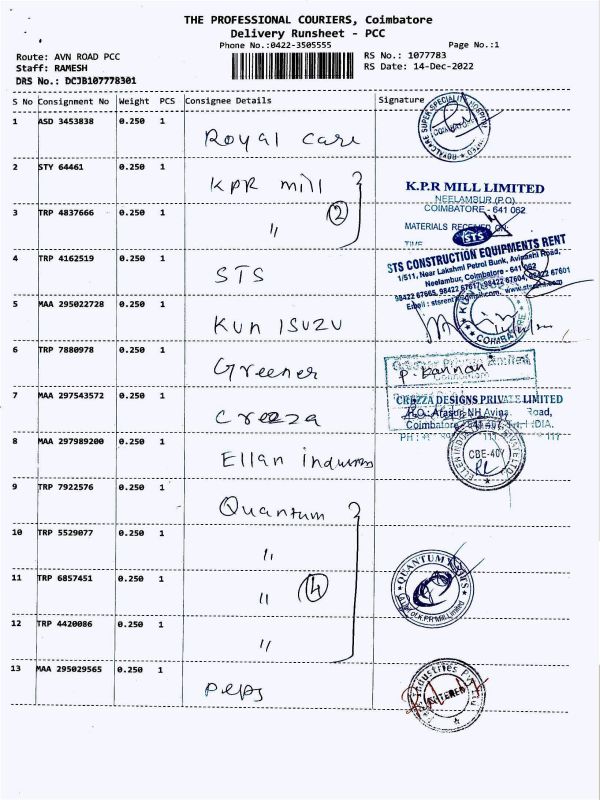 THE PROFESSIONAL COURIERS, Coimbatore
Delivery Runsheet - PCC
Phone No.:0422-3505555
Page No.:1
Route: AVN ROAD PCC
RS No.: 1077783
Staff: RAMESH
RS Date: 14-Dec-2022
DRS No.: DCJB107778301
S No Consignment No Weight PCS Consignee Details Signature
1 ASD 3453838 0.250 1 Royal Care
ROYALCARE SUPER SPECIALITY HOSPITAL LIMITED COIMBATORE
2 STY 64461 0.250 1 KPR mill
K.P.R MILL LIMITED
NEELAMBUR (P.O)
COIMBATORE - 641 062
3 TRP 4837666 0.250 1 " 2
MATERIALS RECEIVED ON:
TIME
STS
4 TRP 4162519 0.250 1 STS
STS CONSTRUCTION EQUIPMENTS RENT
1/511, Near Lakshmi Petrol Bunk, Avinashi Road,
Neelambur, Coimbatore - 641 062
5 MAA 295022728 0.250 1 KUN ISUZU
COIMBATORE
6 TRP 7880978 0.250 1 Greener
P. Kannan
7 MAA 297543572 0.250 1 Creeza
CREZZA DESIGNS PRIVATE LIMITED
Coimbatore
8 MAA 297989200 0.250 1 Ellan industries
CBE-407
9 TRP 7922576 0.250 1 Quantum
10 TRP 5529077 0.250 1 "
11 TRP 6857451 0.250 1 " 4
QUANTUM KNITS
of K.P.R Mill Limited
12 TRP 4420086 0.250 1 "
13 MAA 295029565 0.250 1 Peps
Industries
ENTERED